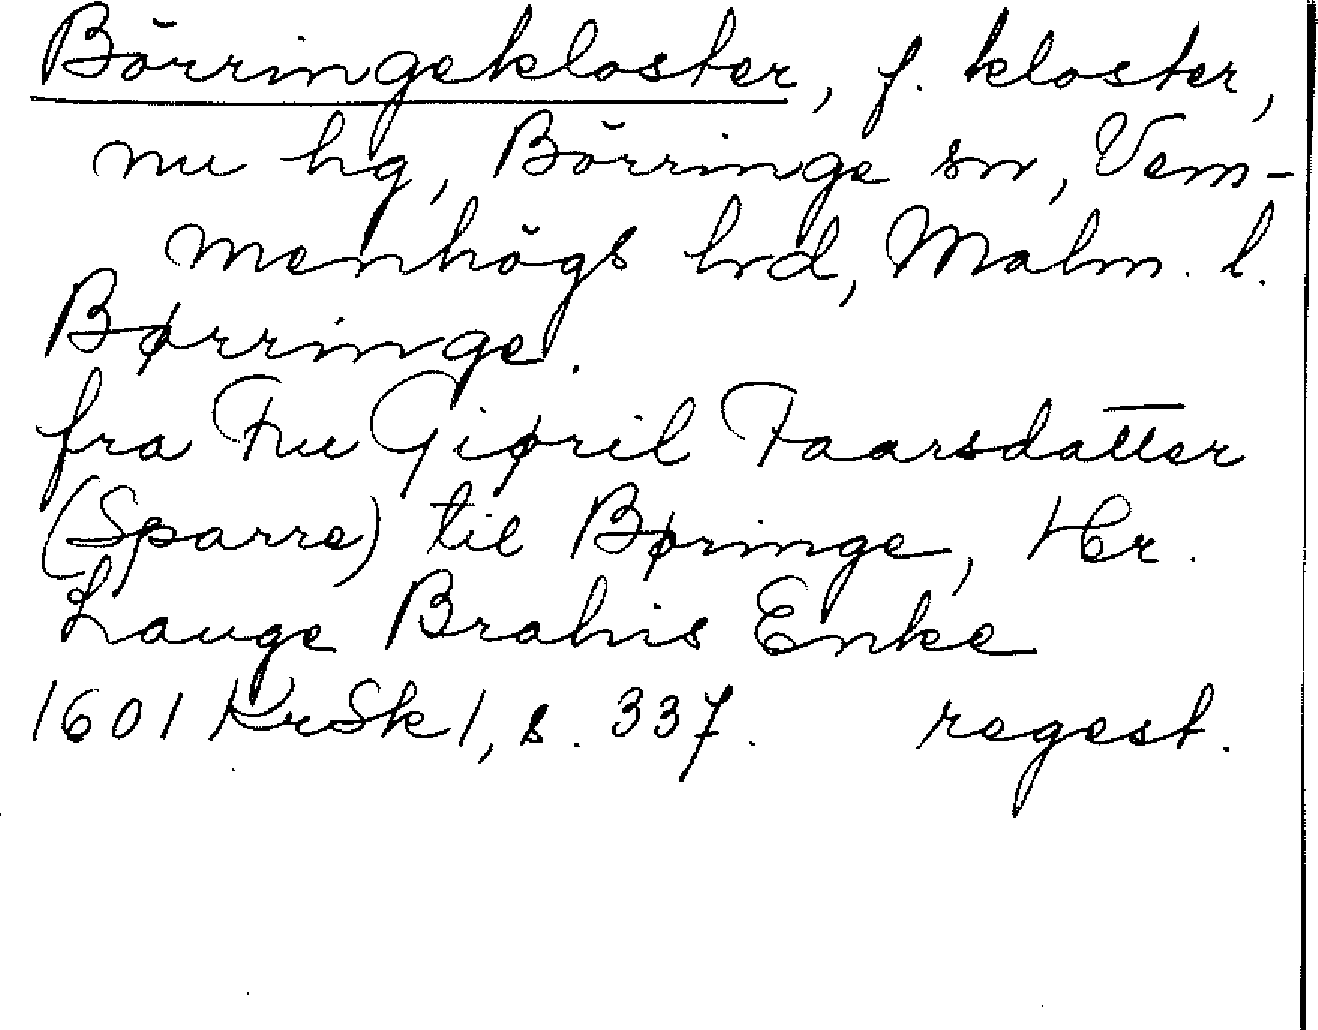 Börringekloster, f. kloster,
nu hg, Börringe sn, Vem-
menhögs hrd, Malm. l.
Børringe.
fra Fru Giøril Faarsdatter
(Sparre) til Børinge, Hr.
Lauge Brahis Enke
1601 KrSk 1, s. 337. regest.